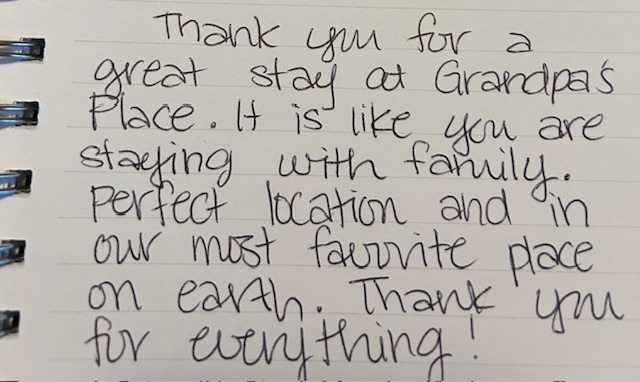 Thank you for a
great stay at Grandpa's
Place. It is like you are
staying with family.
Perfect location and in
our most favorite place
on earth. Thank you
for everything!